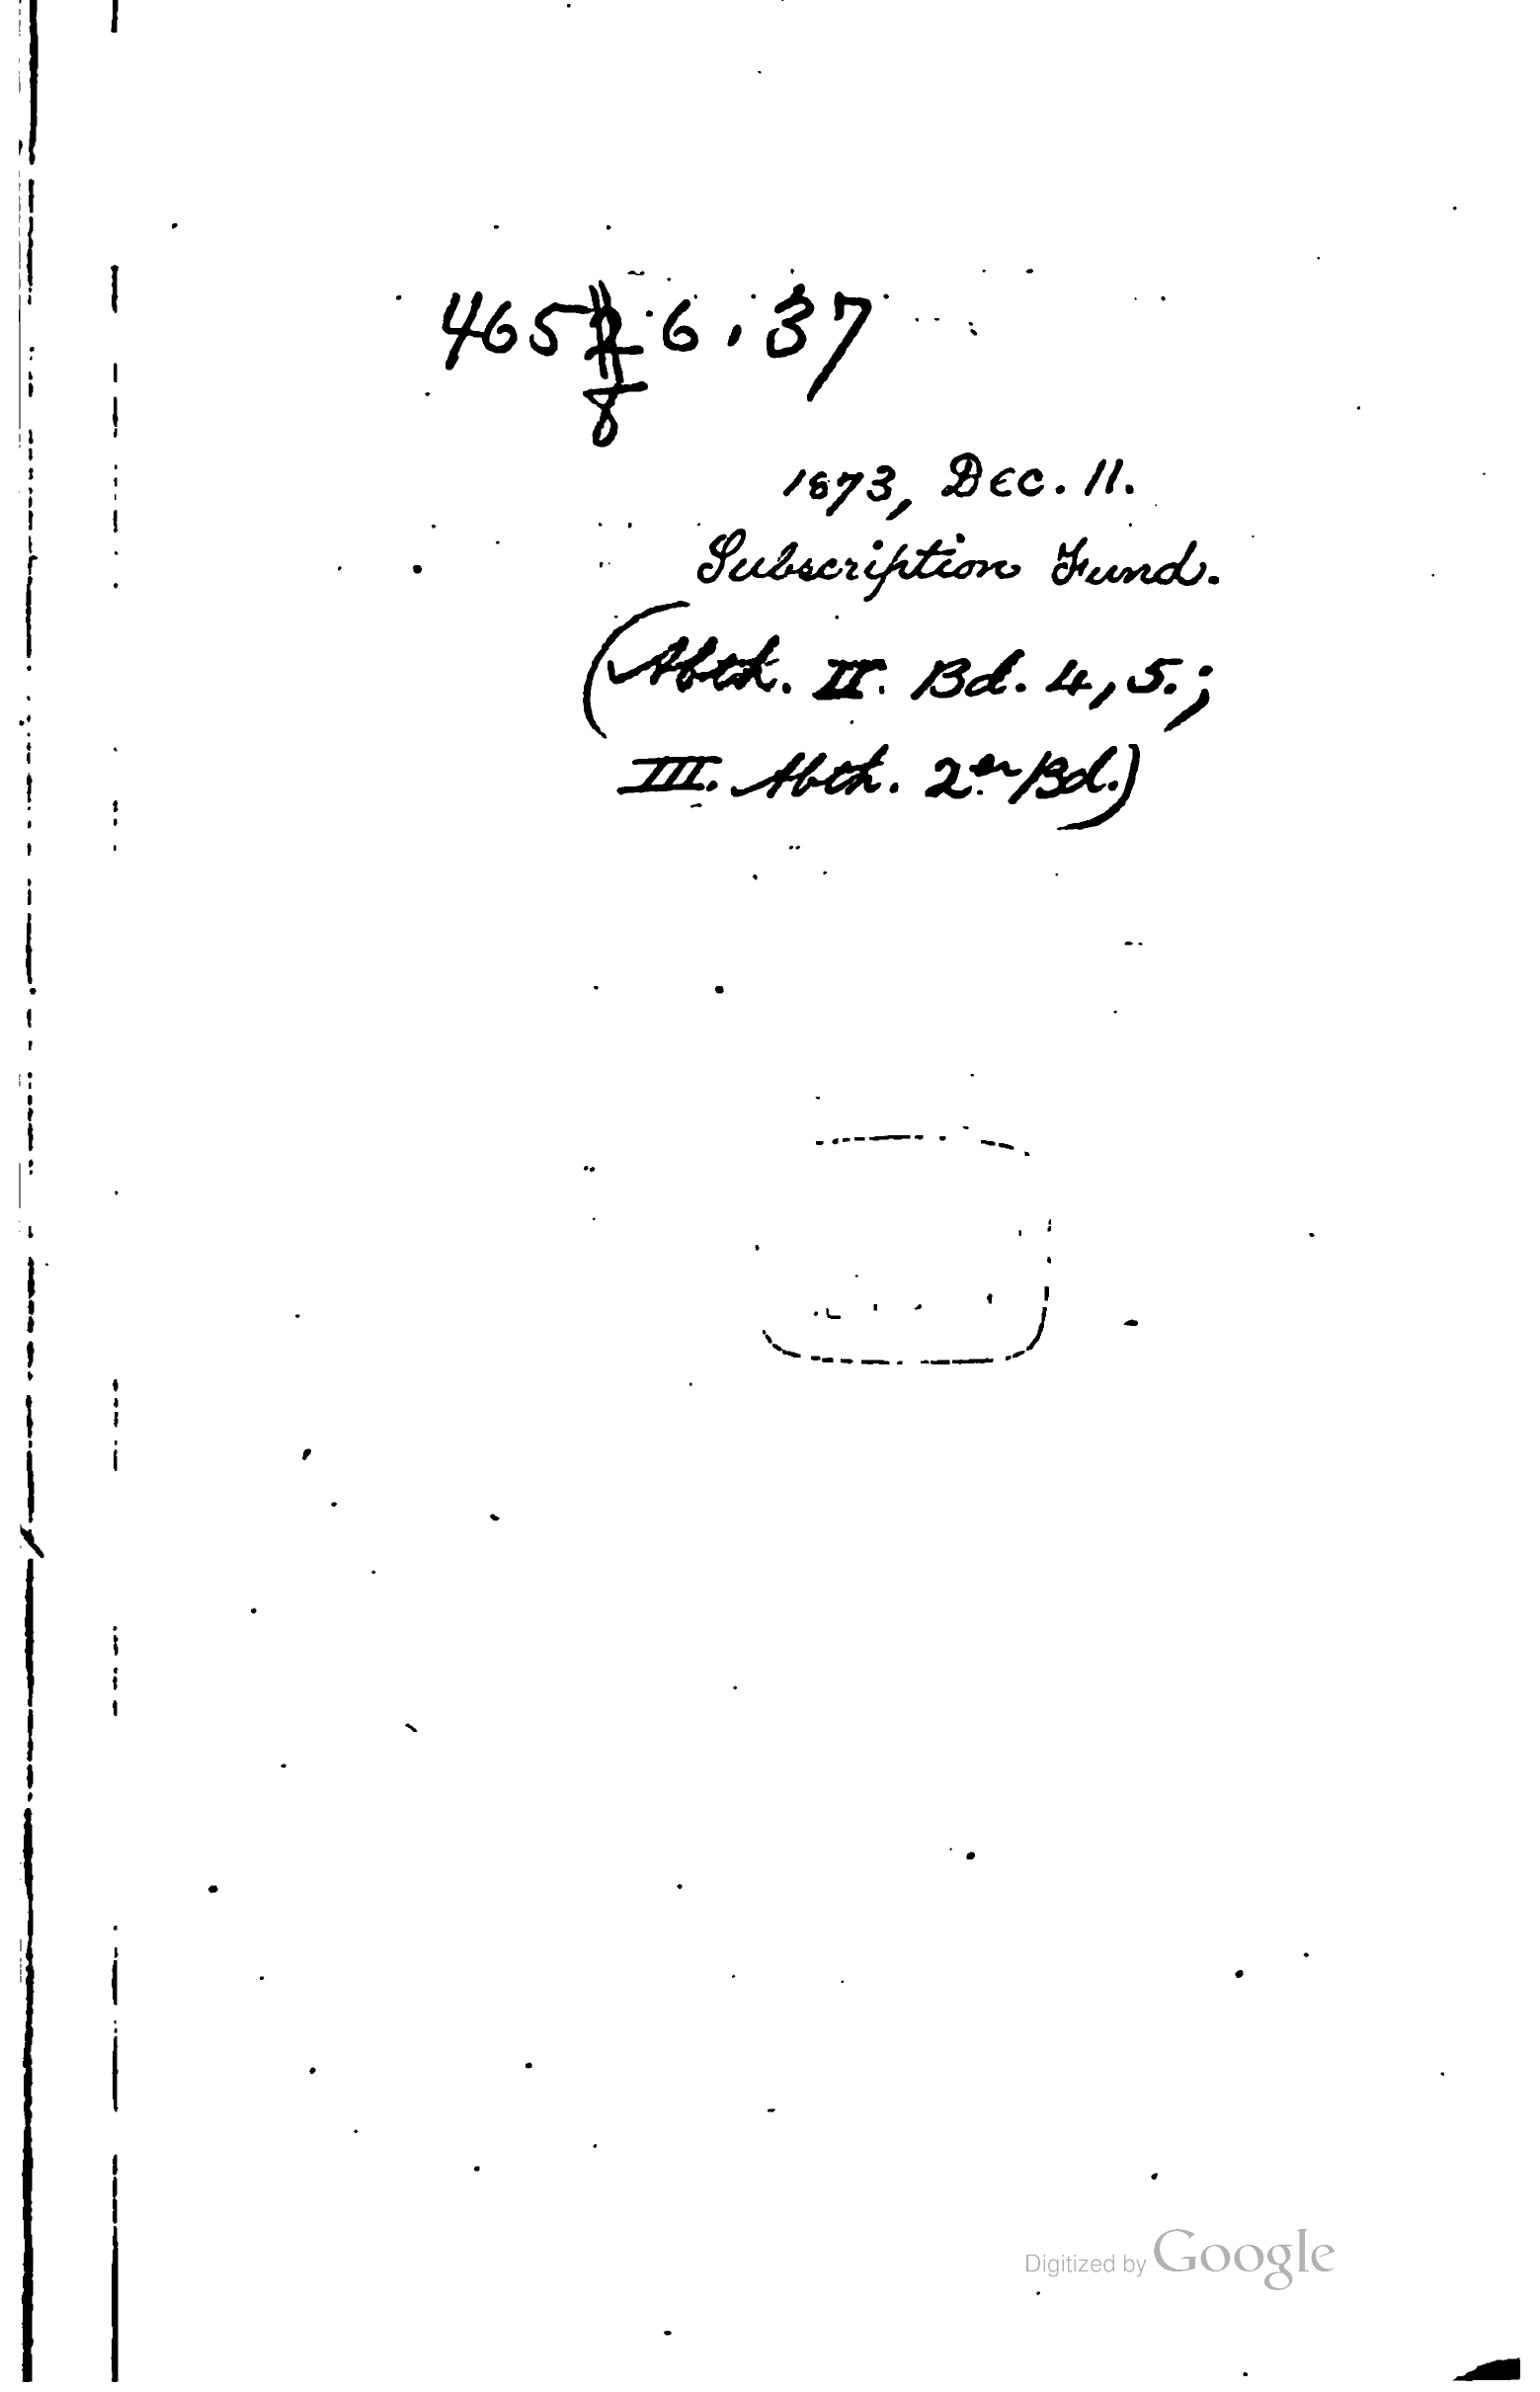 46586.37
1873, Dec. 11.
Subscription Fund.
(Abth. II. Bd. 4, 5.;
III. Abth. 2er Bd.)
Digitized by Google